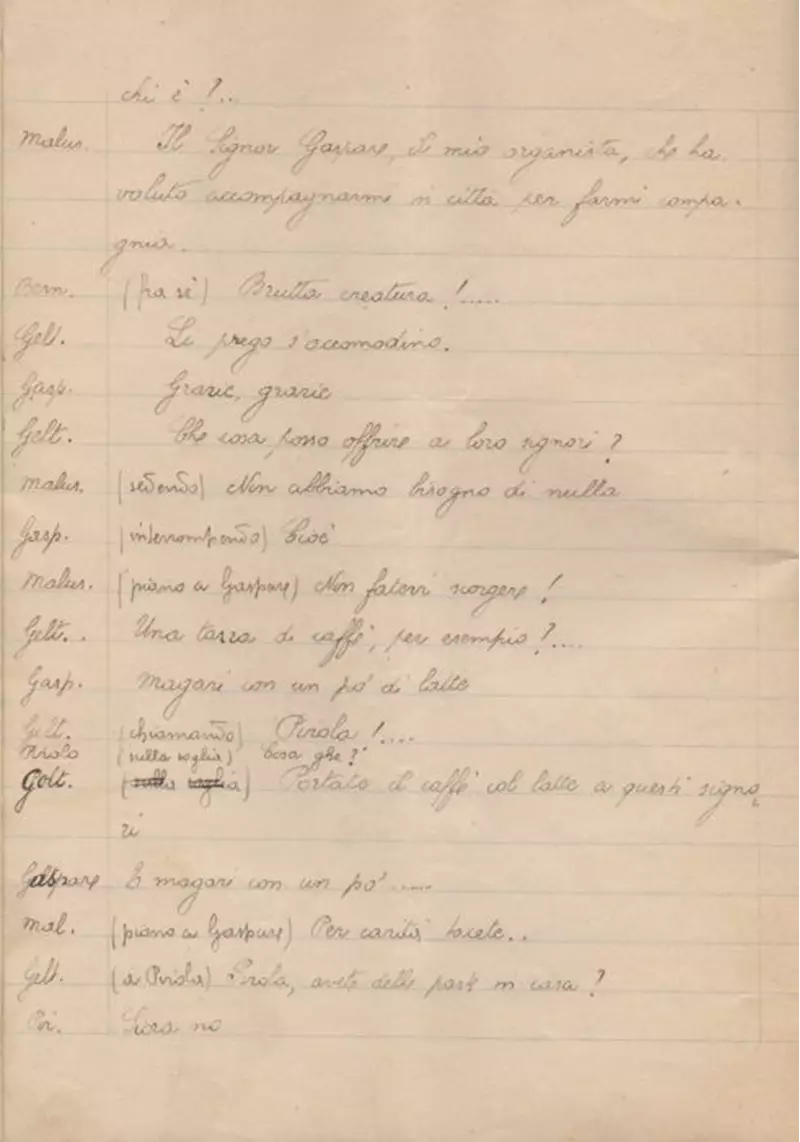 chi è ?..
Malus. Il Signor Gaspare, il mio organista, che ha
voluto accompagnarmi in città per farmi compa-
gnia.
Bern. (fra sè) Brutta creatura !.....
Gelt. Li prego s'accomodino.
Gasp. Grazie, grazie
Gelt. Che cosa posso offrire a loro signori ?
Malus. (sedendo) Non abbiamo bisogno di nulla
Gasp. (interrompendo) Cioè
Malus. (piano a Gaspare) Non fatevi scorgere !
Gelt.. Una tazza di caffè, per esempio ?....
Gasp. Magari con un po' di latte
Gelt. (chiamando) Pirola !....
Pirola (sulla soglia) Cosa ghe ?
Gelt. (sulla soglia) Portate il caffè col latte a questi signo-
ri
Gaspare E magari con un po' .....
Mal. (piano a Gaspare) Per carità tacete..
Gelt. (a Pirola) Pirola, avete delle paste in casa ?
Pir. Siora no